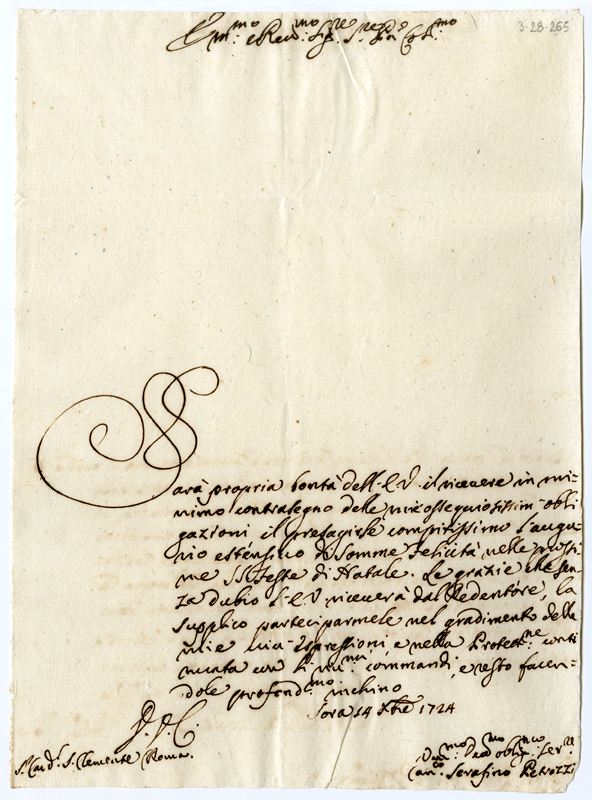 3-28-265
Em.mo e Rev.mo Sig.re S.re Pñ Col.mo
Sarà propria bontà dell'E.V. il ricevere in mi-
nimo contrasegno delle mie ossequiosissim obli
gazioni il presagirle compitissimo l'augu-
rio estensivo di somme felicità nelle prossi
me SS. Feste di Natale. Le grazie che sen
za dubio l'E.V. riceverà dal Redentore, la
supplico parteciparmele nel gradimento delle
mie espressioni, e nella Protet.ne conti
nuata con commandi, e resto facen-
dole profond.mo inchino
Sora 14 Xbre 1724
S.r Card. S. Clemente Roma.
Um.mo Dev.mo oblig.mo Ser.re
Can.co Serafino Petrozzi